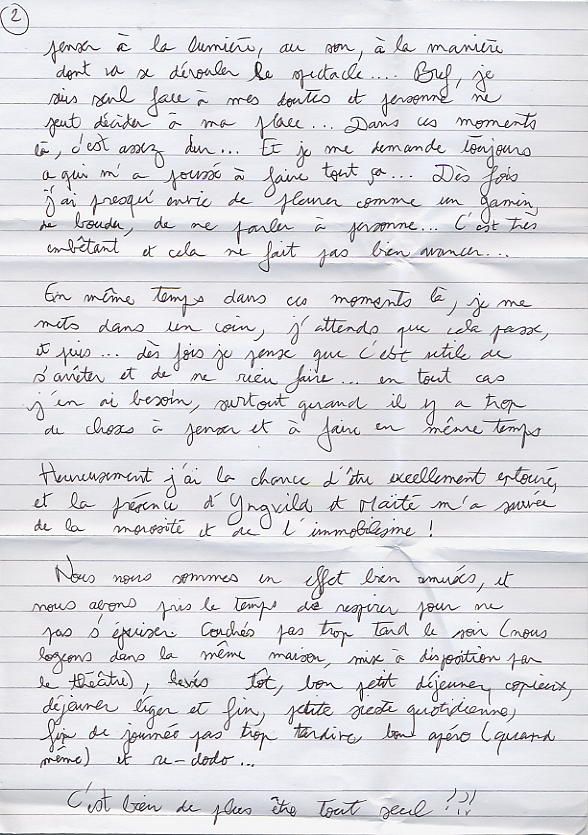 2
penser à la lumière, au son, à la manière
dont va se dérouler le spectacle.... Bref, je
suis seul face à mes doutes et personne ne
peut décider à ma place... Dans ces moments
là, c'est assez dur... Et je me demande toujours
a qui m'a poussé à faire tout ça... Dès fois
j'ai presqu'envie de pleurer comme un gamin,
de bouder, de ne parler à personne... C'est très
embêtant et cela ne fait pas bien avancer...
En même temps dans ces moments là, je me
mets dans un coin, j'attends que cela passe,
et puis... dès fois je pense que c'est utile de
s'arrêter et de ne rien faire... en tout cas
j'en ai besoin, surtout quand il y a trop
de choses à penser et à faire en même temps
Heureusement j'ai la chance d'être excellement entouré,
et la présence d'Yngvild et Maïté m'a sauvée
de la morosité et de l'immobilisme !
Nous nous sommes en effet bien amusés, et
nous avons pris le temps de respirer pour ne
pas s'épuiser. Couchés pas trop tard le soir (nous
logeons dans la même maison, mise à disposition par
le théâtre), levés tôt, bon petit déjeuner copieux,
déjeuner léger et fin, petite sieste quotidienne,
fin de journée pas trop tardive, bon apéro (quand
même) et re-dodo...
C'est bien de plus être tout seul !?!